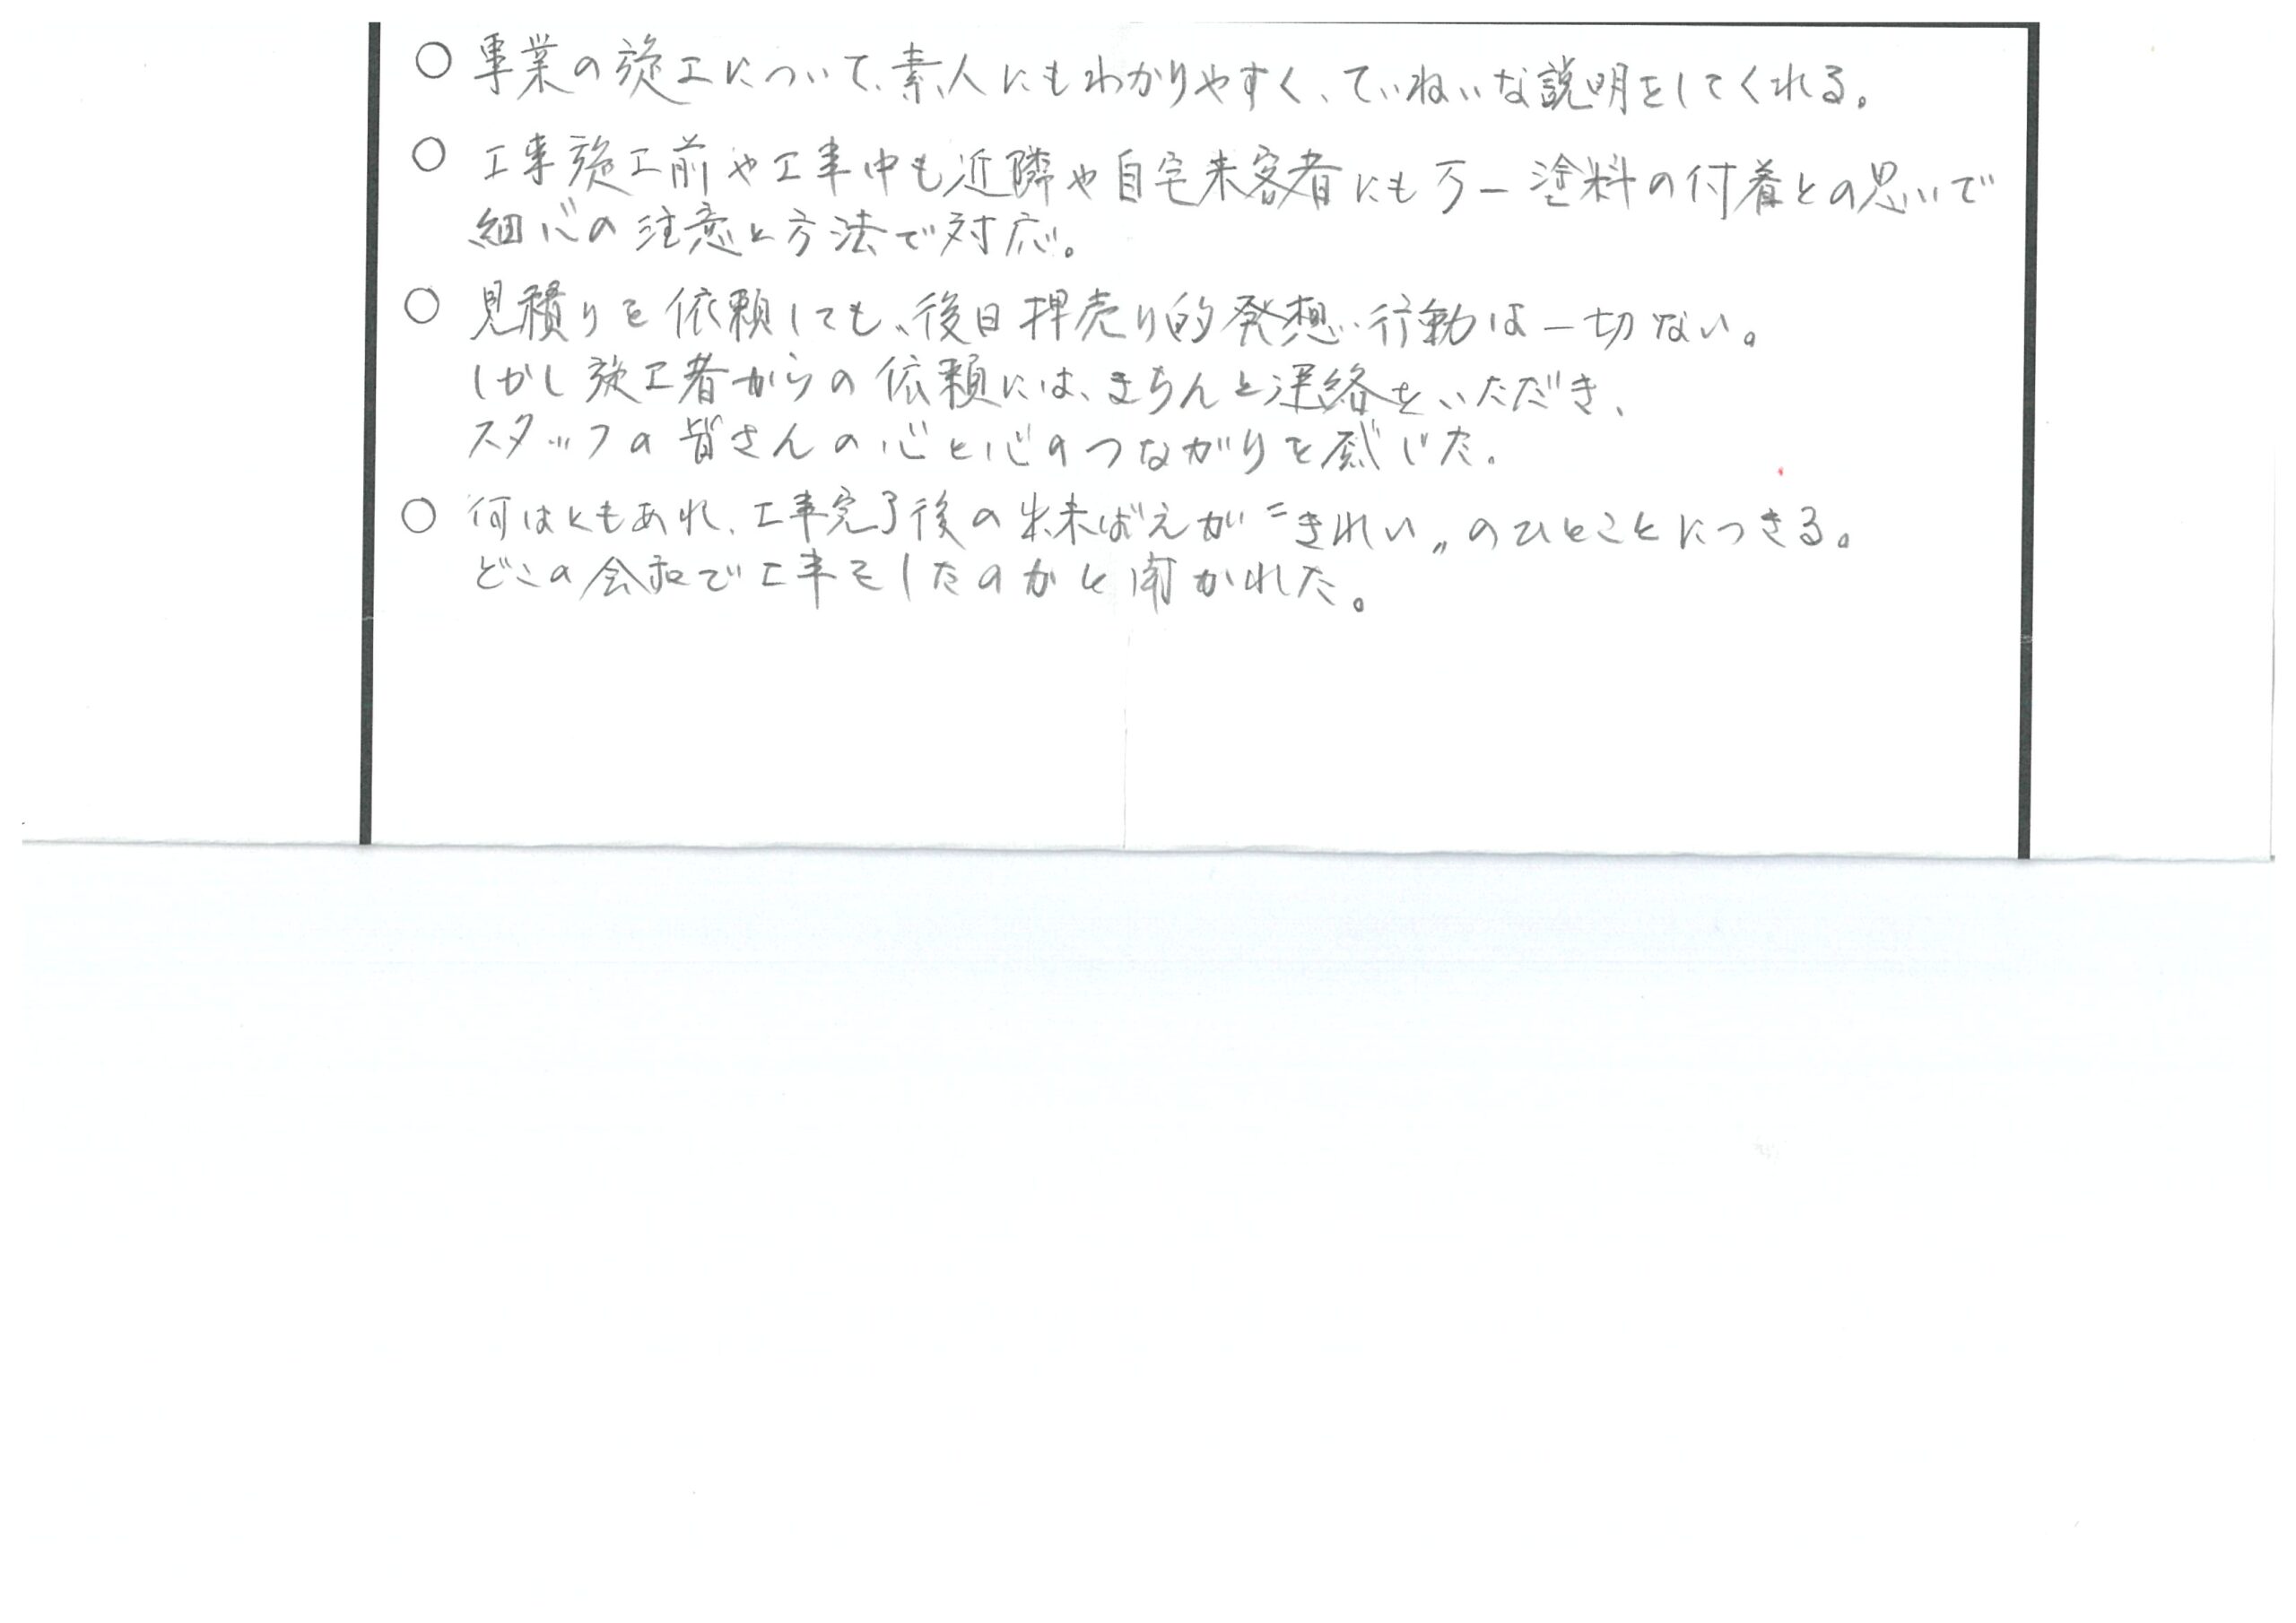 ○ 事業の施工について、素人にもわかりやすく、ていねいな説明をしてくれる。
○ 工事施工前や工事中も近隣や自宅来客者にも万一塗料の付着との思いで
細心の注意と方法で対応。
○ 見積りを依頼しても、後日押売り的発想・行動は一切ない。
しかし施工者からの依頼には、きちんと連絡をいただき、
スタッフの皆さんの心と心のつながりを感じた。
○ 何はともあれ、工事完了後の出来ばえが〝きれい〟のひとことにつきる。
どこの会社で工事をしたのかと聞かれた。